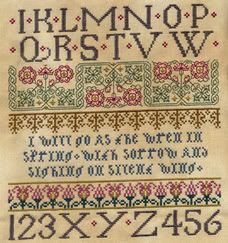 I·K·L·M·N·O·P
Q·R·S·T·V·W
I WILL GO AS THE WREN IN
SPRING· WITH SORROW AND
SIGHING ON SILENT WING·
123XYZ456